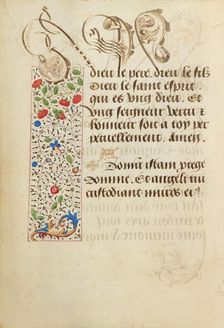 dieu le pere, dieu le filz
Dieu le saint esprit
qui es vng dieu. Et
vng seigneur vertu et
honneur soit a toy per
petuellement. Amen.
Domū istam, protege
domine. Et angeli tui
custodiant muros et